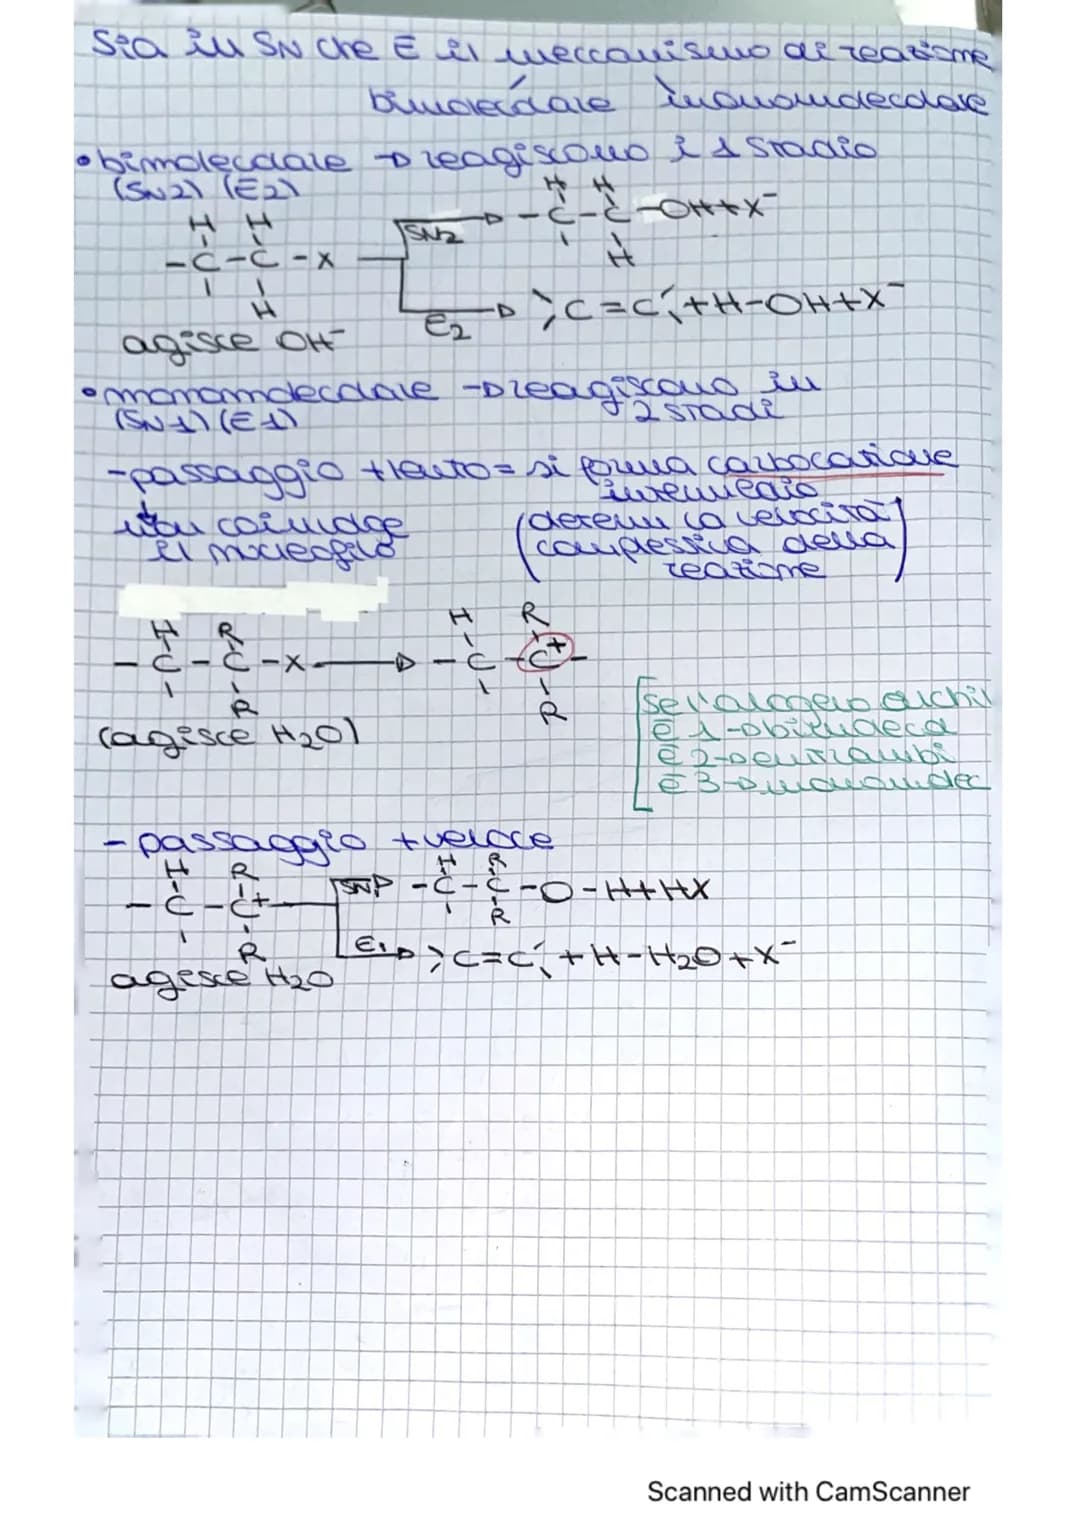 Sia in SN che E il meccanismo di reazione
bimolecolare monomolecolare
•bimolecolare → reagiscono i 1 stadio
(SN2) (E2)
H H
-C-C-X
H
SN2 → -C-C-OH+X⁻
H H
H
E2 → >C=C<+H-OH+X⁻
agisce OH⁻
•monomolecolare →reagiscono in
(SN1) (E1) 2 stadi
-passaggio +lento= si forma carbocatione
intermedio
non coinvolge
il nucleofilo
(determ la velocità
complessiva della
reazione)
H R
-C-C-X → -C-C⁺-
R
H R
R
(agisce H₂O)
[se l'alogeno alchil
è 1→bimolecol
è 2→entrambi
è 3→monomolec
-passaggio +veloce
H R
-C-C+
R
SN → -C-C-O-H+HX
H R
R
E1→ >C=C<+H-H₂O+X⁻
agisce H₂O
Scanned with CamScanner